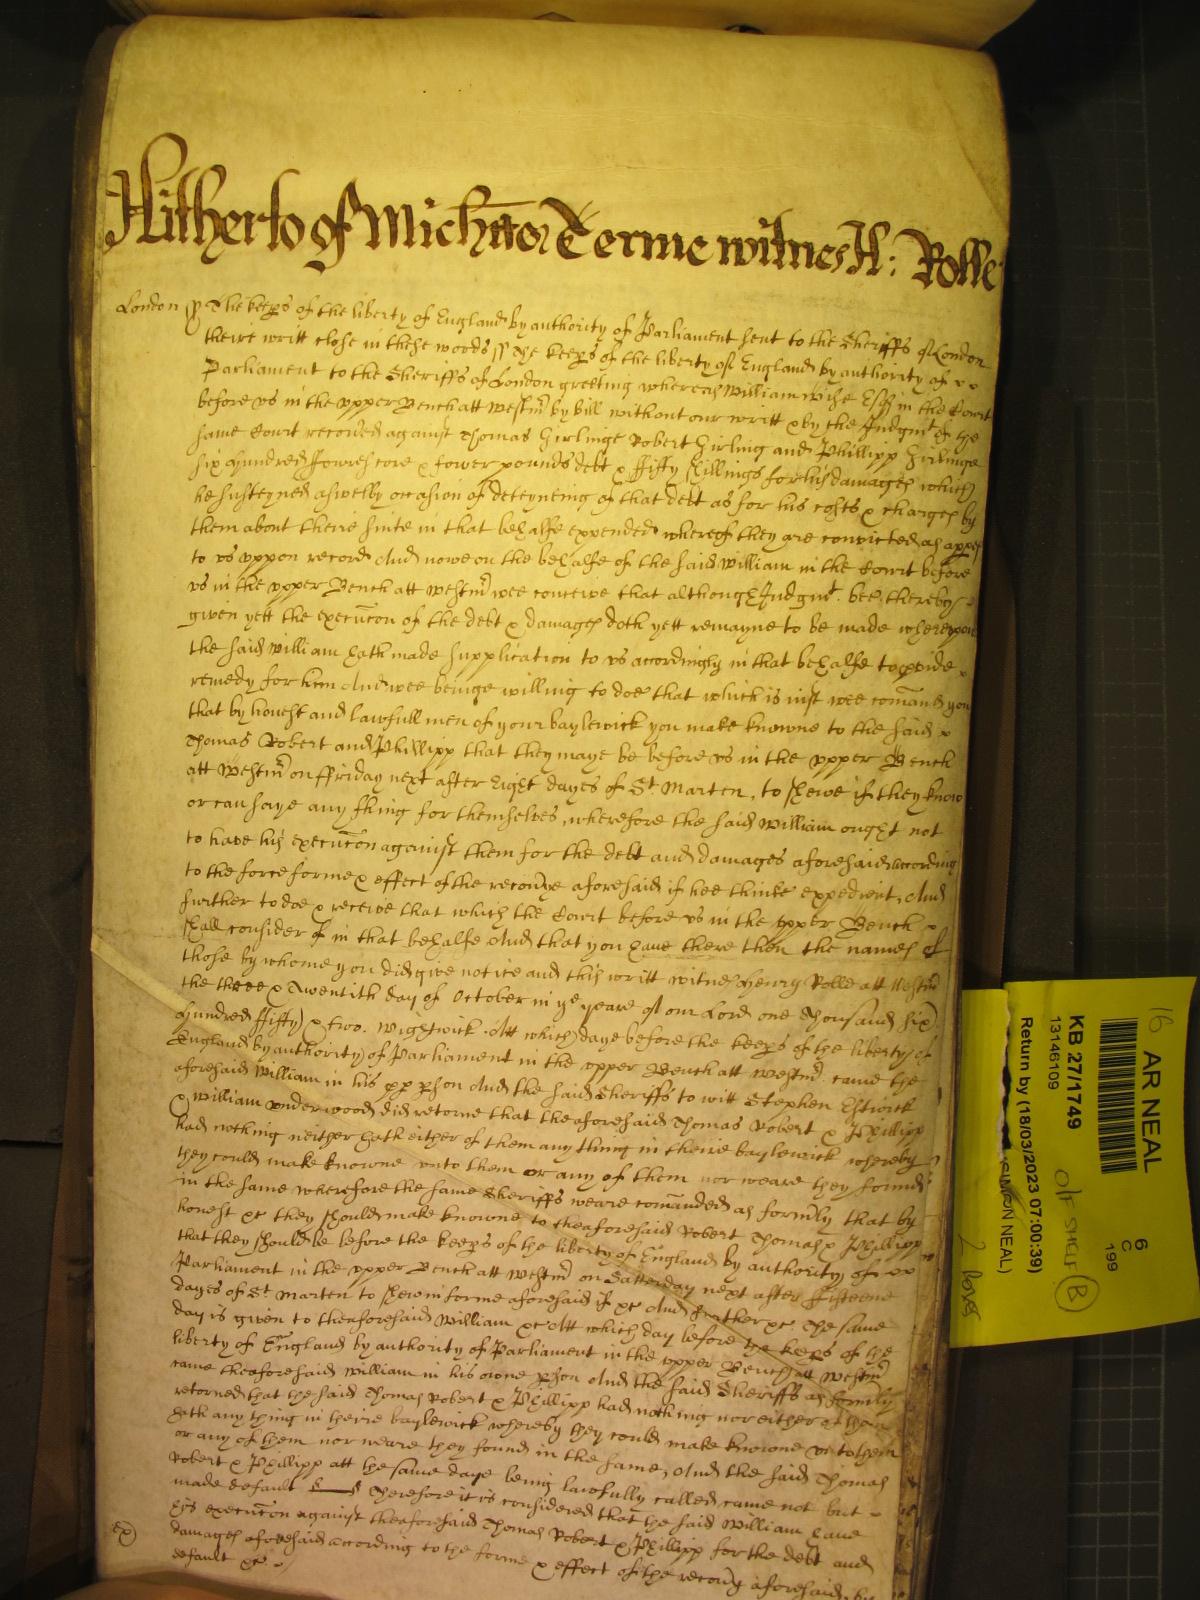 Hitherto of Mich Terme witnes H: Rolle
London ss The keeps of the liberty of England by authority of Parliament sent to the Sheriffs of London
theire writt close in these words ss The keeps of the liberty of England by authority of
Parliament to the Sheriffs of London greeting whereas William Wise Esq in the Court
before vs in the vpper Bench att Westmr by bill without our writt & by the Judgmt of the
same Court recovered against Thomas Girlinge Robert Girling and Phillipp Girlinge
six hundred ffourescore & fower pounds debt & ffifty shillings for his damages which
he susteyned aswell by occasion of deteyneing of that debt as for his costs & charges by
them about theire suite in that behalfe expended whereof they are convicted as appeares
to vs vppon record And nowe on the behalfe of the said William in the Court before
vs in the vpper Bench att Westmr wee conceive that although Judgmt bee thereby
given yett the execucon of the debt & damages doth yett remayne to be made wherevpon
the said William hath made supplication to vs accordingly in that behalfe to pvide
remedy for him And wee beinge willing to doe that which is iust wee comand you
that by honest and lawfull men of your baylewick you make knowne to the said
Thomas Robert and Phillipp that they maye be before vs in the vpper Bench
att Westmr on ffriday next after Eight dayes of St Marten, to shewe if they know
or can saye any thing for themselves, wherefore the said William ought not
to have his execucon against them for the debt and damages aforesaid according
to the force forme & effect of the recove aforesaid if hee thinke expedient, And
further to doe & receive that which the Court before vs in the vpper Bench
shall consider of in that behalfe And that you have there then the names of
those by whome you did give notice and this writt witnes Henry Rolle att Westmr
the three & Twentith day of October in ye yeare of our Lord one Thousand six
hundred ffifty & two. Wightwick Att which daye before the keeps of the liberty of
England by authority of Parliament in the vpper Bench att Westmr came the
aforesaid William in his pson And the said Sheriffs to witt Stephen Estwick
& William vnderwood did retorne that the aforesaid Thomas Robert & Phillipp
had nothing neither hath either of them any thing in theire baylewick whereby
they could make knowne vnto them or any of them nor weare they found
in the same wherefore the same Sheriffs weare comanded as formly that by
honest &c they should make knowne to the aforesaid Robert Thomas & Phillipp
that they should be before the keeps of the liberty of England by authority of
Parliament in the vpper Bench att Westmr on Satterday next after ffifteene
dayes of St Marten to shew in forme aforesaid if &c And further &c The same
day is given to the aforesaid William &c Att which day before the keeps of the
liberty of England by authority of Parliament in the vpper Bench att Westmr
came the aforesaid William in his owne pson And the said Sheriffs as formly
retorned that the said Thomas Robert & Phillipp had nothing nor either of them
hath any thing in theire baylewick whereby they could make knowne vnto them
or any of them nor weare they found in the same, And the said Thomas
Robert & Phillipp att the same daye being lawfully called came not but
made default Therefore it is considered that the said William have
his execucon against the aforesaid Thomas Robert & Phillipp for the debt and
damages aforesaid according to the forme & effect of the recovy aforesaid, by
default &c
ex
16
AR NEAL
6
C
199
KB 27/1749
13146109
O/F SHELF B
Return by (18/03/2023 07:00:39)
(SIMON NEAL)
2 boxes